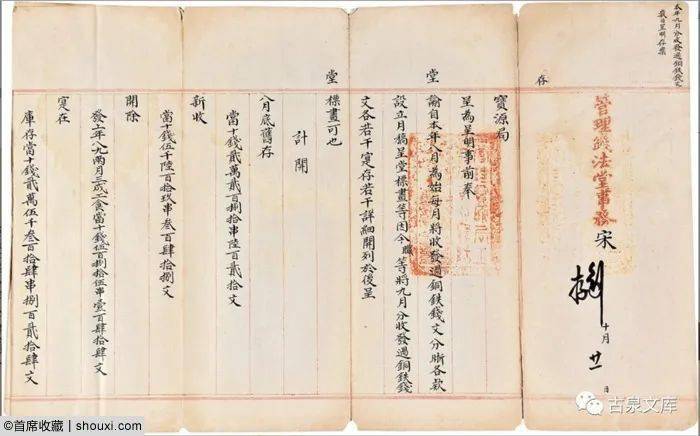 本年九月分收發過銅鉄錢文
數目呈明存案
存
管理錢法堂事務宋
十月廿一日
寶源局
呈為呈明事前奉
堂
諭自本年八月為始每月將收發過銅鉄錢文分晰各款
設立月摺呈堂標畫等因今職等將九月分收發過銅鉄錢
文各若干寔存若干詳細開列於後呈
堂
標畫可也
計開
八月底舊存
當十錢貳萬貳百捌拾串陸百貳拾文
新收
當十錢伍千陸百拾玖串叁百肆拾捌文
開除
發上年八九兩月三成工食當十錢伍百捌拾伍串壹百肆拾肆文
寔在
庫存當十錢貳萬伍千叁百拾肆串捌百貳拾肆文
古泉文库
@首席收藏 | shouxi.com